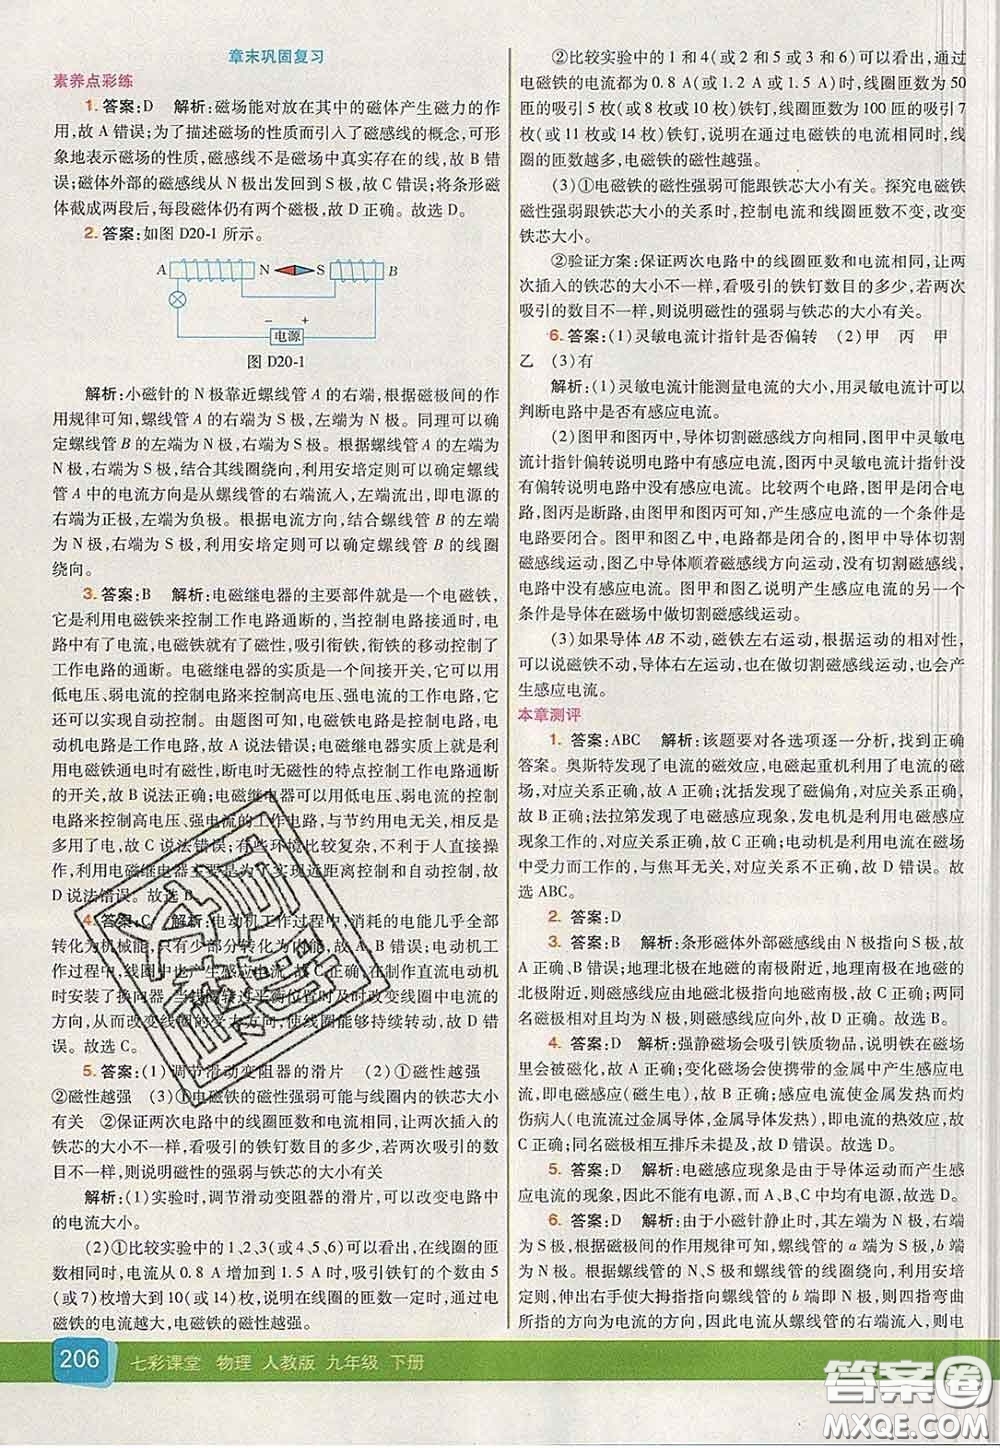 章末巩固复习
素养点彩练
1. 答案:D　解析:磁场能对放在其中的磁体产生磁力的作
用,故 A 错误;为了描述磁场的性质而引入了磁感线的概念,可形
象地表示磁场的性质,磁感线不是磁场中真实存在的线,故 B 错
误;磁体外部的磁感线从 N 极出发回到 S 极,故 C 错误;将条形磁
体截成两段后,每段磁体仍有两个磁极,故 D 正确。故选 D。
2. 答案:如图 D20-1 所示。
A N S B
− +
电源
图 D20-1
解析:小磁针的 N 极靠近螺线管 A 的右端,根据磁极间的作
用规律可知,螺线管 A 的右端为 S 极,左端为 N 极。同理可以确
定螺线管 B 的左端为 N 极,右端为 S 极。根据螺线管 A 的左端为
N 极,右端为 S 极,结合其线圈绕向,利用安培定则可以确定螺线
管 A 中的电流方向是从螺线管的右端流入,左端流出,即电源的
右端为正极,左端为负极。根据电流方向,结合螺线管 B 的左端为
N 极,右端为 S 极,利用安培定则可以确定螺线管 B 的线圈
绕向。
3. 答案:B　解析:电磁继电器的主要部件就是一个电磁铁,
它是利用电磁铁来控制工作电路通断的,当控制电路接通时,电
路中有了电流,电磁铁就有了磁性,吸引衔铁,衔铁的移动控制了
工作电路的通断。电磁继电器的实质是一个间接开关,它可以用
低电压、弱电流的控制电路来控制高电压、强电流的工作电路,它
还可以实现自动控制。由题图可知,电磁铁电路是控制电路,
电动机电路是工作电路,故 A 说法错误;电磁继电器实质上就是利
用电磁铁通电时有磁性,断电时无磁性的特点控制工作电路通断
的开关,故 B 说法正确;电磁继电器可以用低电压、弱电流的控制
电路来控制高电压、强电流的工作电路,与节约用电无关,相反是
多用了电,故 C 说法错误;有些环境比较复杂,不利于人直接操
作,利用电磁继电器主要是为了远距离控制和自动控制,故
D 说法错误。故选 B。
4. 答案:C　解析:电动机工作过程中,消耗的电能几乎全部
转化为机械能,只有少部分转化为内能,故 A 错误;电动机工作
过程中,线圈中也产生感应电流,故 C 正确;在制作直流电动机
时安装了换向器,当线圈转过平衡位置时及时改变线圈中电流的
方向,从而改变线圈的受力方向,使线圈能够持续转动,故 D 错
误。故选 C。
5. 答案:(1)调节滑动变阻器的滑片　(2)①磁性越强
②磁性越强　(3)①电磁铁的磁性强弱可能与线圈内的铁芯大小
有关　②保证两次电路中的线圈匝数和电流相同,让两次插入的
铁芯的大小不一样,看吸引的铁钉数目的多少,若两次吸引的数
目不一样,则说明磁性的强弱与铁芯的大小有关
解析:(1)实验时,调节滑动变阻器的滑片,可以改变电路中
的电流大小。
(2)①比较实验中的 1、2、3(或 4、5、6)可以看出,在线圈的匝
数相同时,电流从 0.8 A 增加到 1.5 A 时,吸引铁钉的个数由 5
(或 7)枚增大到 10(或 14)枚,说明在线圈的匝数一定时,通过电
磁铁的电流越大,电磁铁的磁性越强。
②比较实验中的 1 和 4(或 2 和 5 或 3 和 6)可以看出,通过
电磁铁的电流都为 0.8 A(或 1.2 A 或 1.5 A)时,线圈匝数为 50
匝的吸引 5 枚(或 8 枚或 10 枚)铁钉,线圈匝数为 100 匝的吸引 7
枚(或 11 枚或 14 枚)铁钉,说明在通过电磁铁的电流相同时,线
圈的匝数越多,电磁铁的磁性越强。
(3)①电磁铁的磁性强弱可能跟铁芯大小有关。探究电磁铁
磁性强弱与铁芯大小的关系时,控制电流和线圈匝数不变,改变
铁芯大小。
②验证方案:保证两次电路中的线圈匝数和电流相同,让两
次插入的铁芯的大小不一样,看吸引的铁钉数目的多少,若两次
吸引的数目不一样,则说明磁性的强弱与铁芯的大小有关。
6. 答案:(1)灵敏电流计指针是否偏转　(2)甲　丙　甲
乙　(3)有
解析:(1)灵敏电流计能测量电流的大小,用灵敏电流计可以
判断电路中是否有感应电流。
(2)图甲和图丙中,导体切割磁感线方向相同,图甲中灵敏电
流计指针偏转说明电路中有感应电流;图丙中灵敏电流计指针没
有偏转说明电路中没有感应电流。比较两个电路,图甲是闭合
的,图丙是断开的,由图甲和图丙可知,产生感应电流的一个条件是
电路要闭合。图甲和图乙中,电路都是闭合的,图甲中导体切割
磁感线方向运动,图乙中导体顺着磁感线方向运动,没有切割磁感线,
电路中没有感应电流。图甲和图乙说明产生感应电流的另一个
条件是导体在磁场中做切割磁感线运动。
(3)如果导体 AB 不动,磁铁左右运动,根据运动的相对性,
可以说磁铁不动,导体右左运动,也在做切割磁感线运动,也会产
生感应电流。
本章测评
1. 答案:ABC　解析:该题要对各选项逐一分析,找到正确
答案。奥斯特发现了电流的磁效应,电磁起重机利用了电流的磁
场,对应关系正确,故 A 正确;沈括发现了磁偏角,对应
关系正确,故 B 正确;法拉第发现了电磁感应现象,发电机是利用电磁感应
现象工作的,对应关系正确,故 C 正确;电动机是利用电流在磁场
中受力而工作的,与焦耳无关,对应关系不正确,故 D 错误。故
选 ABC。
2. 答案:D
3. 答案:B　解析:条形磁体外部磁感线由 N 极指向 S 极,故
A 正确,B 错误;地理北极在地磁的南极附近,地理南极在地磁的
北极附近,则磁感线应由地磁北极指向地磁南极,故 C 正确;两同
名磁极相对且均为 N 极,则磁感线应向外,故 D 正确。故选 B。
4. 答案:D　解析:强静磁场会吸引铁质物品,说明铁在磁场
里会被磁化,故 A 正确;变化磁场会使携带的金属中产生感应电
流,即电磁感应(磁生电),故 B 正确;感应电流使金属发热而灼
伤病人(电流流过金属导体,金属导体发热),即电流的热效应,故
C 正确;同名磁极相互排斥未提及,故 D 错误。故选 D。
5. 答案:D　解析:电磁感应现象是由于导体运动而产生感
应电流的现象,因此不能有电源,而 A、B、C 中都有电源。故选 D。
6. 答案:D　解析:由于小磁针静止时,其左端为 N 极,右端
为 S 极,根据磁极间的作用规律可知,螺线管的 a 端为 S 极,b 端
为 N 极。根据螺线管的 N、S 极和螺线管的线圈绕向,利用安培
定则,伸出右手使大拇指指向螺线管的 b 端即 N 极,则四指弯曲
所指的方向为电流的方向,即电流是从
206 七彩课堂　物理　人教版　九年级　下册
答案圈
MXQE.COM